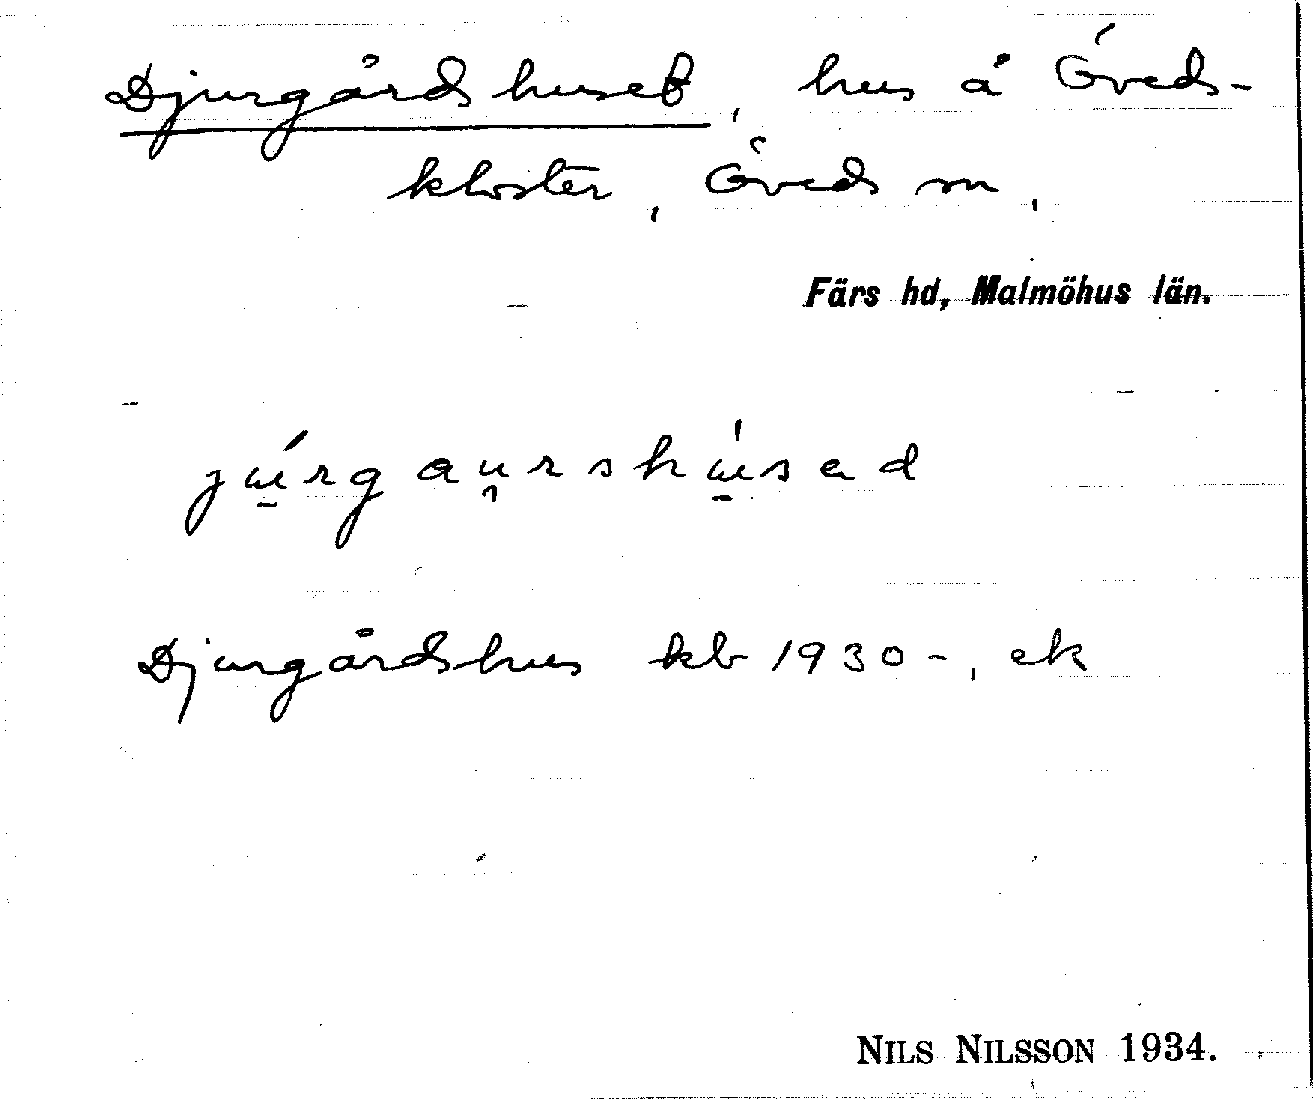 Djurgårdshuset, hus å Öveds-
kloster, Öveds sn,
Färs hd, Malmöhus län.
Djurgårdshus kb 1930-, ek
NILS NILSSON 1934.